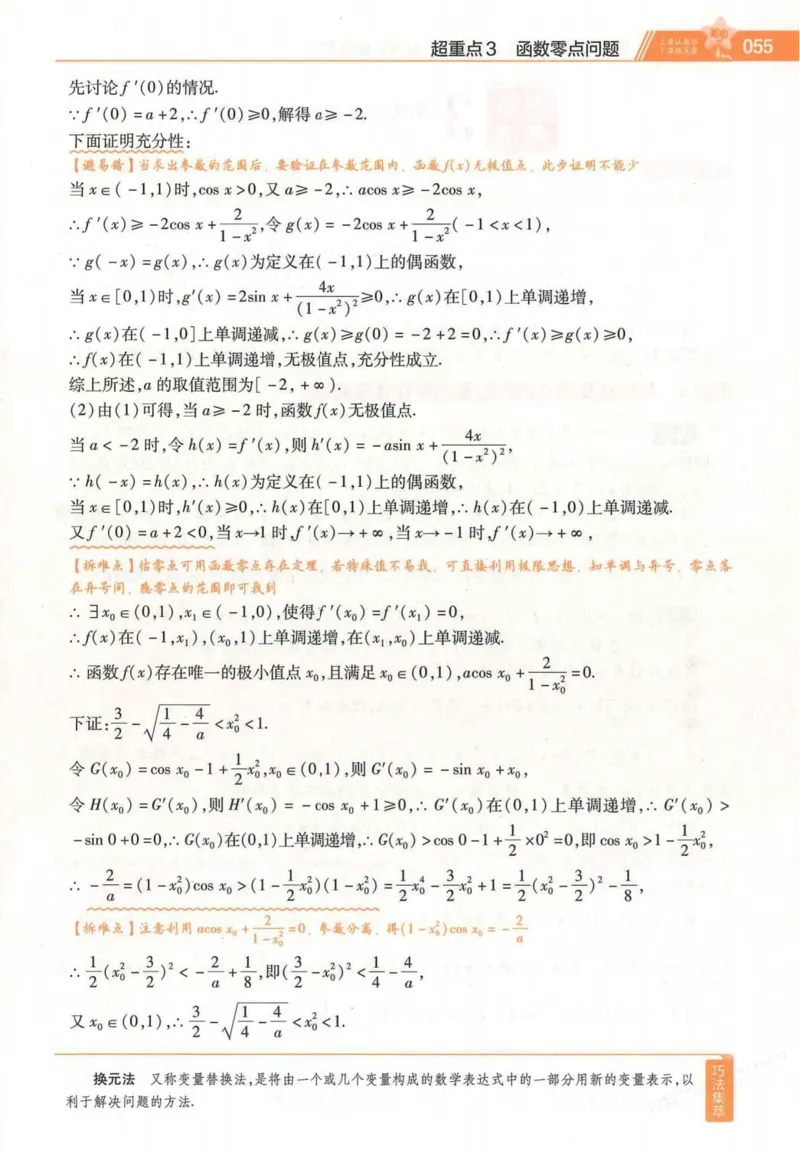 超重点3 函数零点问题
055
先讨论f'(0)的情况.
∵f'(0)=a+2,∴f'(0)≥0,解得a≥-2.
下面证明充分性:
【避易错】当求出参数的范围后,要验证在参数范围内,函数f(x)无极值点,此步证明不能少
当x∈(-1,1)时,cos x>0,又a≥-2,∴acos x≥-2cos x,
∴f'(x)≥-2cos x+2/(1-x²),令g(x)=-2cos x+2/(1-x²)(-1<x<1),
∵g(-x)=g(x),∴g(x)为定义在(-1,1)上的偶函数,
当x∈[0,1)时,g'(x)=2sin x+4x/(1-x²)²≥0,∴g(x)在[0,1)上单调递增,
∴g(x)在(-1,0]上单调递减,∴g(x)≥g(0)=-2+2=0,∴f'(x)≥g(x)≥0,
∴f(x)在(-1,1)上单调递增,无极值点,充分性成立.
综上所述,a的取值范围为[-2,+∞).
(2)由(1)可得,当a≥-2时,函数f(x)无极值点.
当a<-2时,令h(x)=f'(x),则h'(x)=-asin x+4x/(1-x²)²,
∵h(-x)=h(x),∴h(x)为定义在(-1,1)上的偶函数,
当x∈[0,1)时,h'(x)≥0,∴h(x)在[0,1)上单调递增,∴h(x)在(-1,0)上单调递减.
又f'(0)=a+2<0,当x→1时,f'(x)→+∞,当x→-1时,f'(x)→+∞,
【拆难点】估零点可用函数零点存在定理,若特殊值不易找,可直接利用极限思想,知单调与异号,零点落
在异号间,隐零点的范围即可找到
∴∃x₀∈(0,1),x₁∈(-1,0),使得f'(x₀)=f'(x₁)=0,
∴f(x)在(-1,x₁),(x₀,1)上单调递增,在(x₁,x₀)上单调递减.
∴函数f(x)存在唯一的极小值点x₀,且满足x₀∈(0,1),acos x₀+2/(1-x₀²)=0.
下证:3/2-√(1/4-4/a)<x₀²<1.
令G(x₀)=cos x₀-1+1/2x₀²,x₀∈(0,1),则G'(x₀)=-sin x₀+x₀,
令H(x₀)=G'(x₀),则H'(x₀)=-cos x₀+1≥0,∴G'(x₀)在(0,1)上单调递增,∴G'(x₀)>
-sin 0+0=0,∴G(x₀)在(0,1)上单调递增,∴G(x₀)>cos 0-1+1/2×0²=0,即cos x₀>1-1/2x₀²,
∴-2/a=(1-x₀²)cos x₀>(1-1/2x₀²)(1-x₀²)=1/2x₀⁴-3/2x₀²+1=1/2(x₀²-3/2)²-1/8,
【拆难点】注意利用acos x₀+2/(1-x₀²)=0,参数分离,得(1-x₀²)cos x₀=-2/a
∴1/2(x₀²-3/2)²<-2/a+1/8,即(3/2-x₀²)²<1/4-4/a,
又x₀∈(0,1),∴3/2-√(1/4-4/a)<x₀²<1.
换元法 又称变量替换法,是将由一个或几个变量构成的数学表达式中的一部分用新的变量表示,以
利于解决问题的方法.
巧法集萃